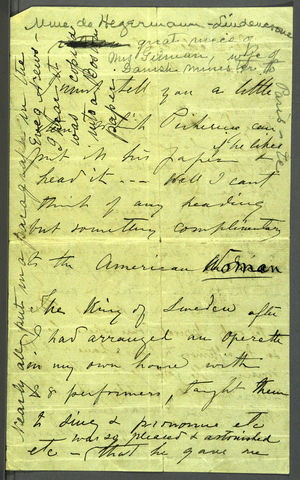 Mme. de Hegermann-Lindencrone
great niece of
Mrs Furman, wife of
Danish minister to
Paris - Te
I must tell you a little
item, that Pickering can
put in his paper if he likes
head it --- Well I can't
think of any heading
but something complimentary
to the American Woman
The King of Sweden after
I had arranged an Operette
in my own house with
& 8 performers, taught them
to sing & pronounce etc
etc - was so pleased & astonished
that he gave me
Nearly all put in a paragraph in the
Eve'g News -
I hear it
was copied
into a Boston
paper